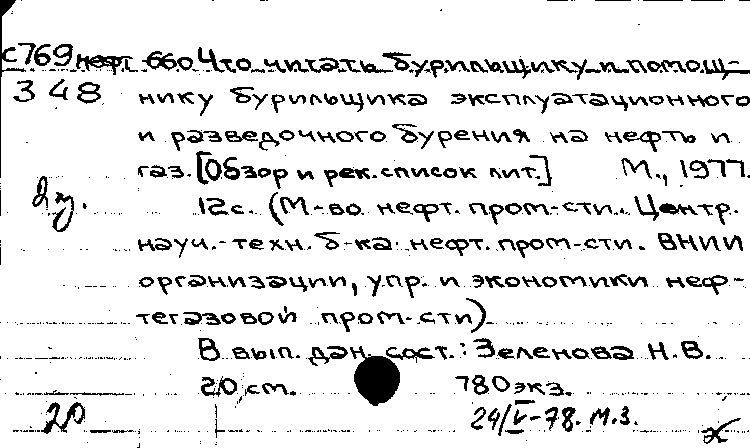 с769 нефт 660 Что читать бурильщику и помощ-
348 нику бурильщика эксплуатационного
и разведочного бурения на нефть и
газ. [Обзор и рек. список лит.] М., 1977.
12с. (М-во нефт. пром-сти. Центр.
науч.-техн. б-ка нефт. пром-сти. ВНИИ
организации, упр. и экономики неф-
тегазовой пром-сти)
В вып. дан. сост.: Зеленова Н.В.
20 см. 780 экз.
20 24/V-78. М.З.